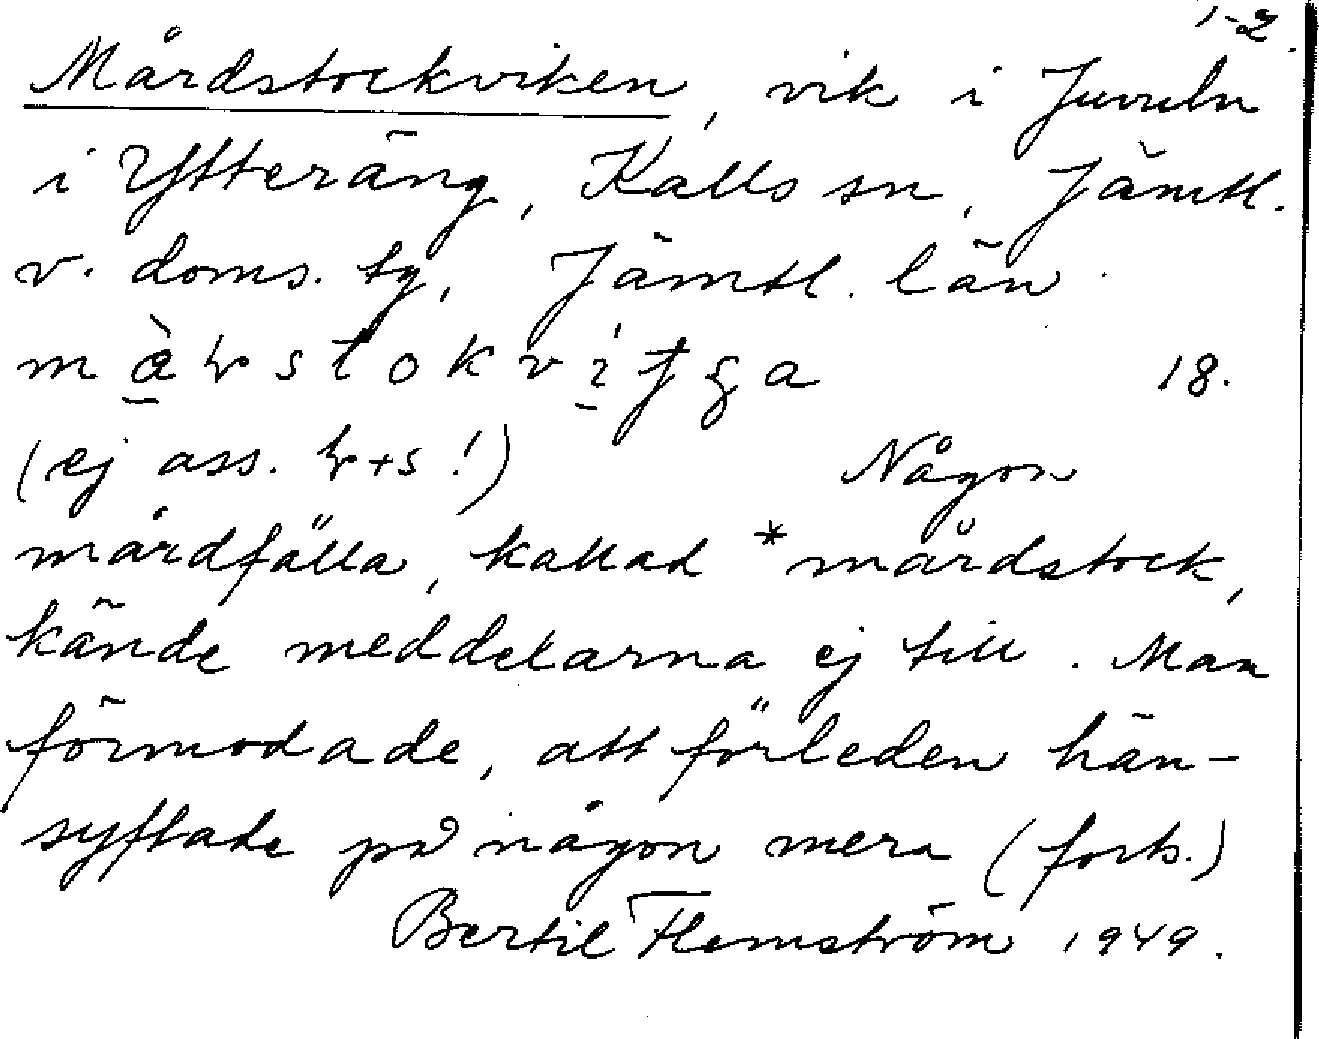 1-2.
Mårdstockviken, vik i Juvuln
i Ytteräng, Kalls sn, Jämtl.
v. doms. tg, Jämtl. län
18.
(ej ass. +s!) Någon
mårdfälla, kallad *mårdstock,
kände meddelarna ej till. Man
förmodade, att förleden hän-
syftade på någon mera (forts.)
Bertil Flemström 1949.